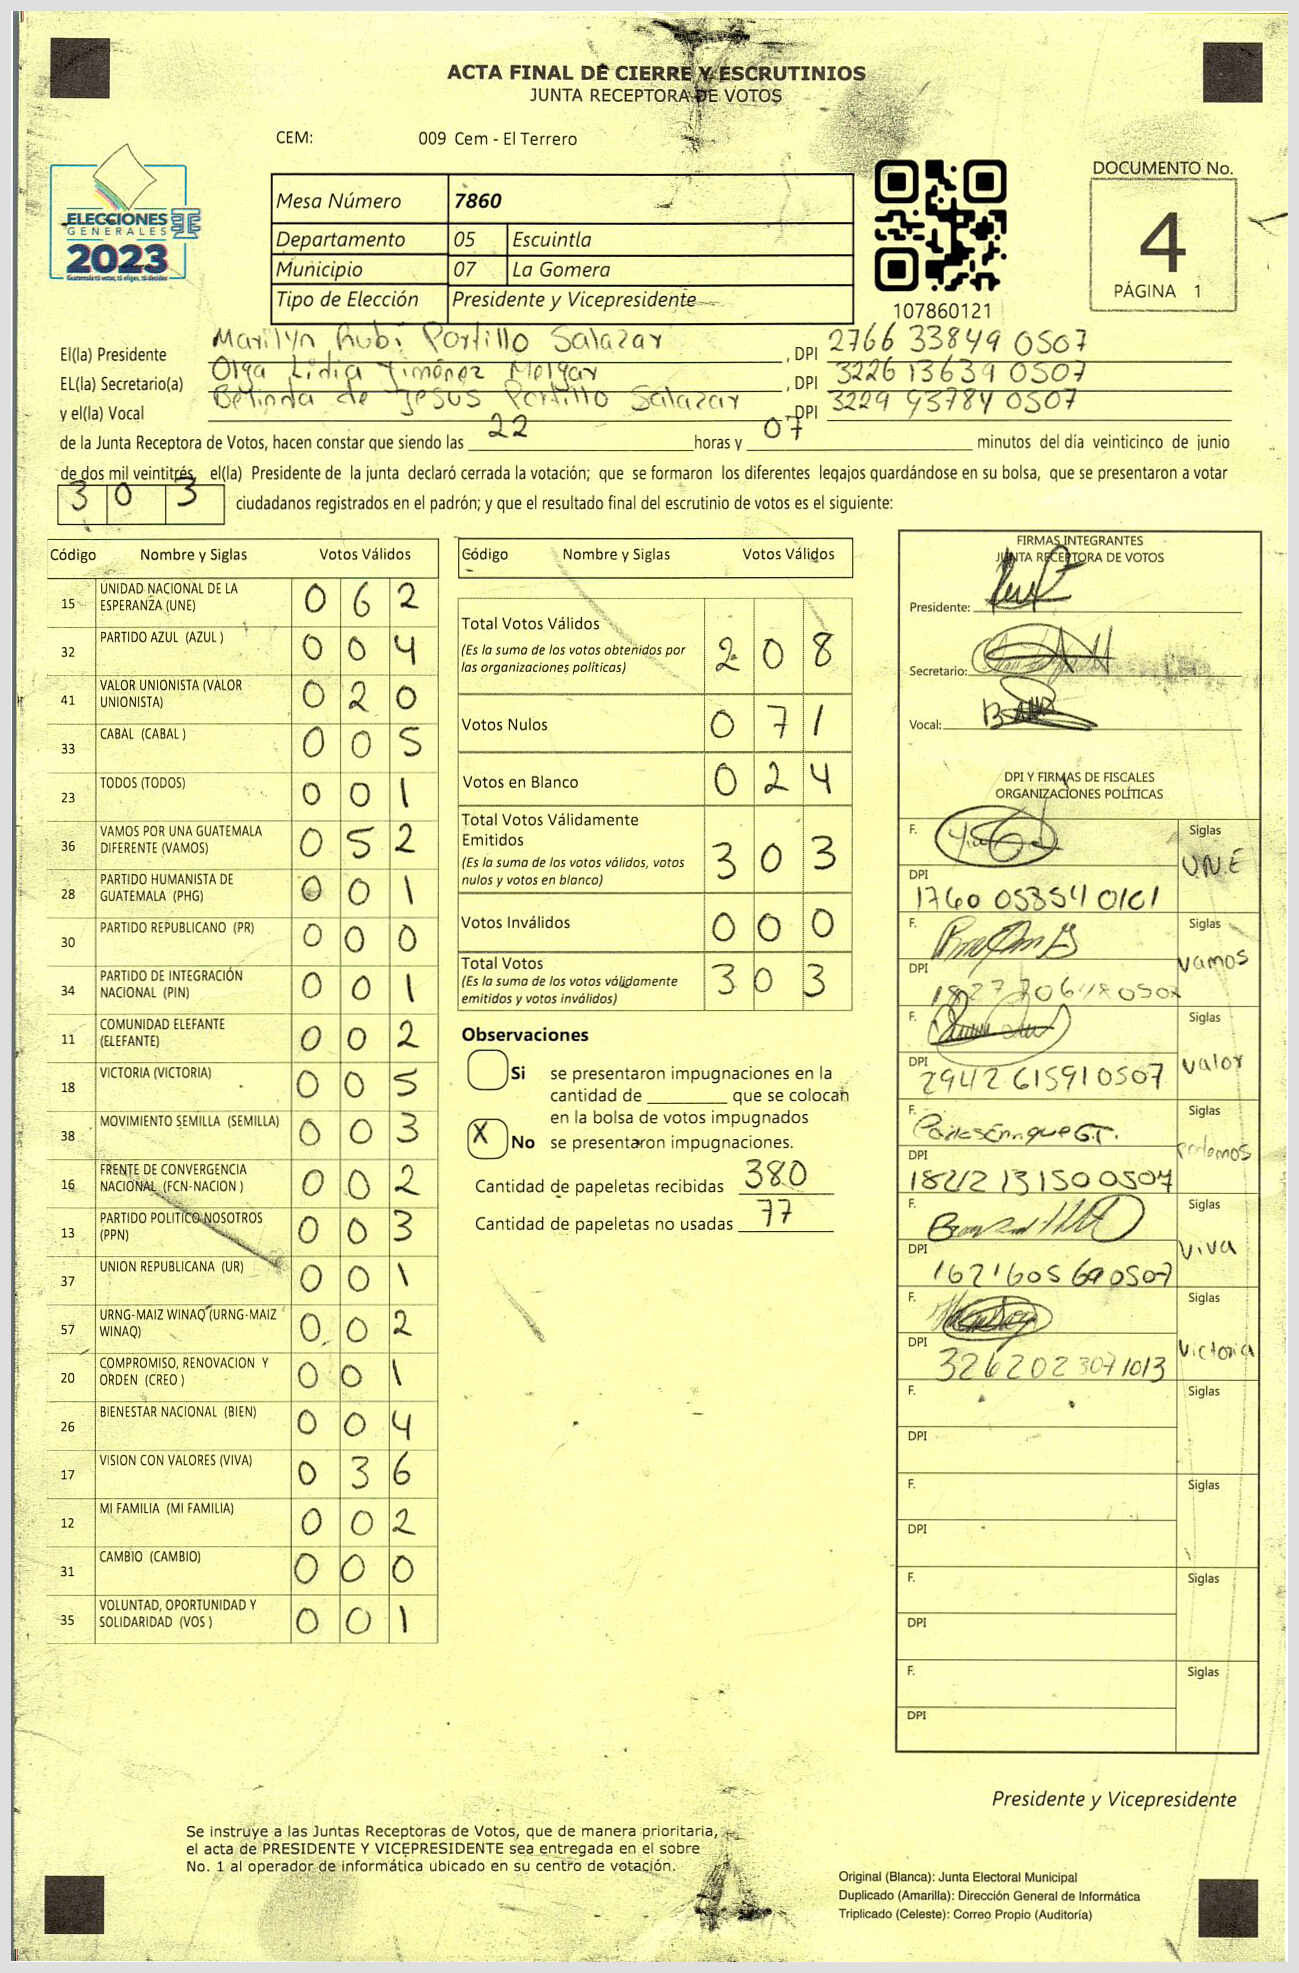 ACTA FINAL DE CIERRE Y ESCRUTINIOS
JUNTA RECEPTORA DE VOTOS
CEM: 009 Cem - El Terrero
ELECCIONES
GENERALES
2023
Mesa Número 7860
Departamento 05 Escuintla
Municipio 07 La Gomera
Tipo de Elección Presidente y Vicepresidente
107860121
DOCUMENTO No.
4
PÁGINA 1
El(la) Presidente Marilyn Rubi Portillo Salazar , DPI 2766 33849 0507
EL(la) Secretario(a) Olga Lidia Jiménez Melgar , DPI 3226 13639 0507
y el(la) Vocal Belinda de Jesus Portillo Salazar , DPI 3229 93784 0507
de la Junta Receptora de Votos, hacen constar que siendo las 22 horas y 07 minutos del día veinticinco de junio
de dos mil veintitrés, el(la) Presidente de la junta declaró cerrada la votación; que se formaron los diferentes legajos quardándose en su bolsa, que se presentaron a votar
303 ciudadanos registrados en el padrón; y que el resultado final del escrutinio de votos es el siguiente:
Código Nombre y Siglas Votos Válidos
15 UNIDAD NACIONAL DE LA ESPERANZA (UNE) 0 6 2
32 PARTIDO AZUL (AZUL ) 0 0 4
41 VALOR UNIONISTA (VALOR UNIONISTA) 0 2 0
33 CABAL (CABAL ) 0 0 5
23 TODOS (TODOS) 0 0 1
36 VAMOS POR UNA GUATEMALA DIFERENTE (VAMOS) 0 5 2
28 PARTIDO HUMANISTA DE GUATEMALA (PHG) 0 0 1
30 PARTIDO REPUBLICANO (PR) 0 0 0
34 PARTIDO DE INTEGRACIÓN NACIONAL (PIN) 0 0 1
11 COMUNIDAD ELEFANTE (ELEFANTE) 0 0 2
18 VICTORIA (VICTORIA) 0 0 5
38 MOVIMIENTO SEMILLA (SEMILLA) 0 0 3
16 FRENTE DE CONVERGENCIA NACIONAL (FCN-NACION ) 0 0 2
13 PARTIDO POLITICO NOSOTROS (PPN) 0 0 3
37 UNION REPUBLICANA (UR) 0 0 1
57 URNG-MAIZ WINAQ (URNG-MAIZ WINAQ) 0 0 2
20 COMPROMISO, RENOVACION Y ORDEN (CREO ) 0 0 1
26 BIENESTAR NACIONAL (BIEN) 0 0 4
17 VISION CON VALORES (VIVA) 0 3 6
12 MI FAMILIA (MI FAMILIA) 0 0 2
31 CAMBIO (CAMBIO) 0 0 0
35 VOLUNTAD, OPORTUNIDAD Y SOLIDARIDAD (VOS ) 0 0 1
Código Nombre y Siglas Votos Válidos
Total Votos Válidos 2 0 8
(Es la suma de los votos obtenidos por
las organizaciones politicas)
Votos Nulos 0 7 1
Votos en Blanco 0 2 4
Total Votos Válidamente
Emitidos 3 0 3
(Es la suma de los votos válidos, votos
nulos y votos en blanco)
Votos Inválidos 0 0 0
Total Votos 3 0 3
(Es la suma de los votos válidamente
emitidos y votos inválidos)
Observaciones
Si se presentaron impugnaciones en la
cantidad de que se colocan
en la bolsa de votos impugnados
X No se presentaron impugnaciones.
Cantidad de papeletas recibidas 380
Cantidad de papeletas no usadas 77
FIRMAS INTEGRANTES
JUNTA RECEPTORA DE VOTOS
Presidente:
Secretario:
Vocal:
DPI Y FIRMAS DE FISCALES
ORGANIZACIONES POLÍTICAS
F. Siglas U.N.E
DPI 1760 05854 0101
F. Siglas vamos
DPI
F. Siglas valor
DPI 2942 61591 0507
F. Siglas podemos
DPI
F. Siglas viva
DPI
F. Siglas Victoria
DPI 3262023071013
F. Siglas
DPI
F. Siglas
DPI
F. Siglas
DPI
F. Siglas
DPI
Presidente y Vicepresidente
Se instruye a las Juntas Receptoras de Votos, que de manera prioritaria,
el acta de PRESIDENTE Y VICEPRESIDENTE sea entregada en el sobre
No. 1 al operador de informática ubicado en su centro de votación.
Original (Blanca): Junta Electoral Municipal
Duplicado (Amarilla): Dirección General de Informática
Triplicado (Celeste): Correo Propio (Auditoría)